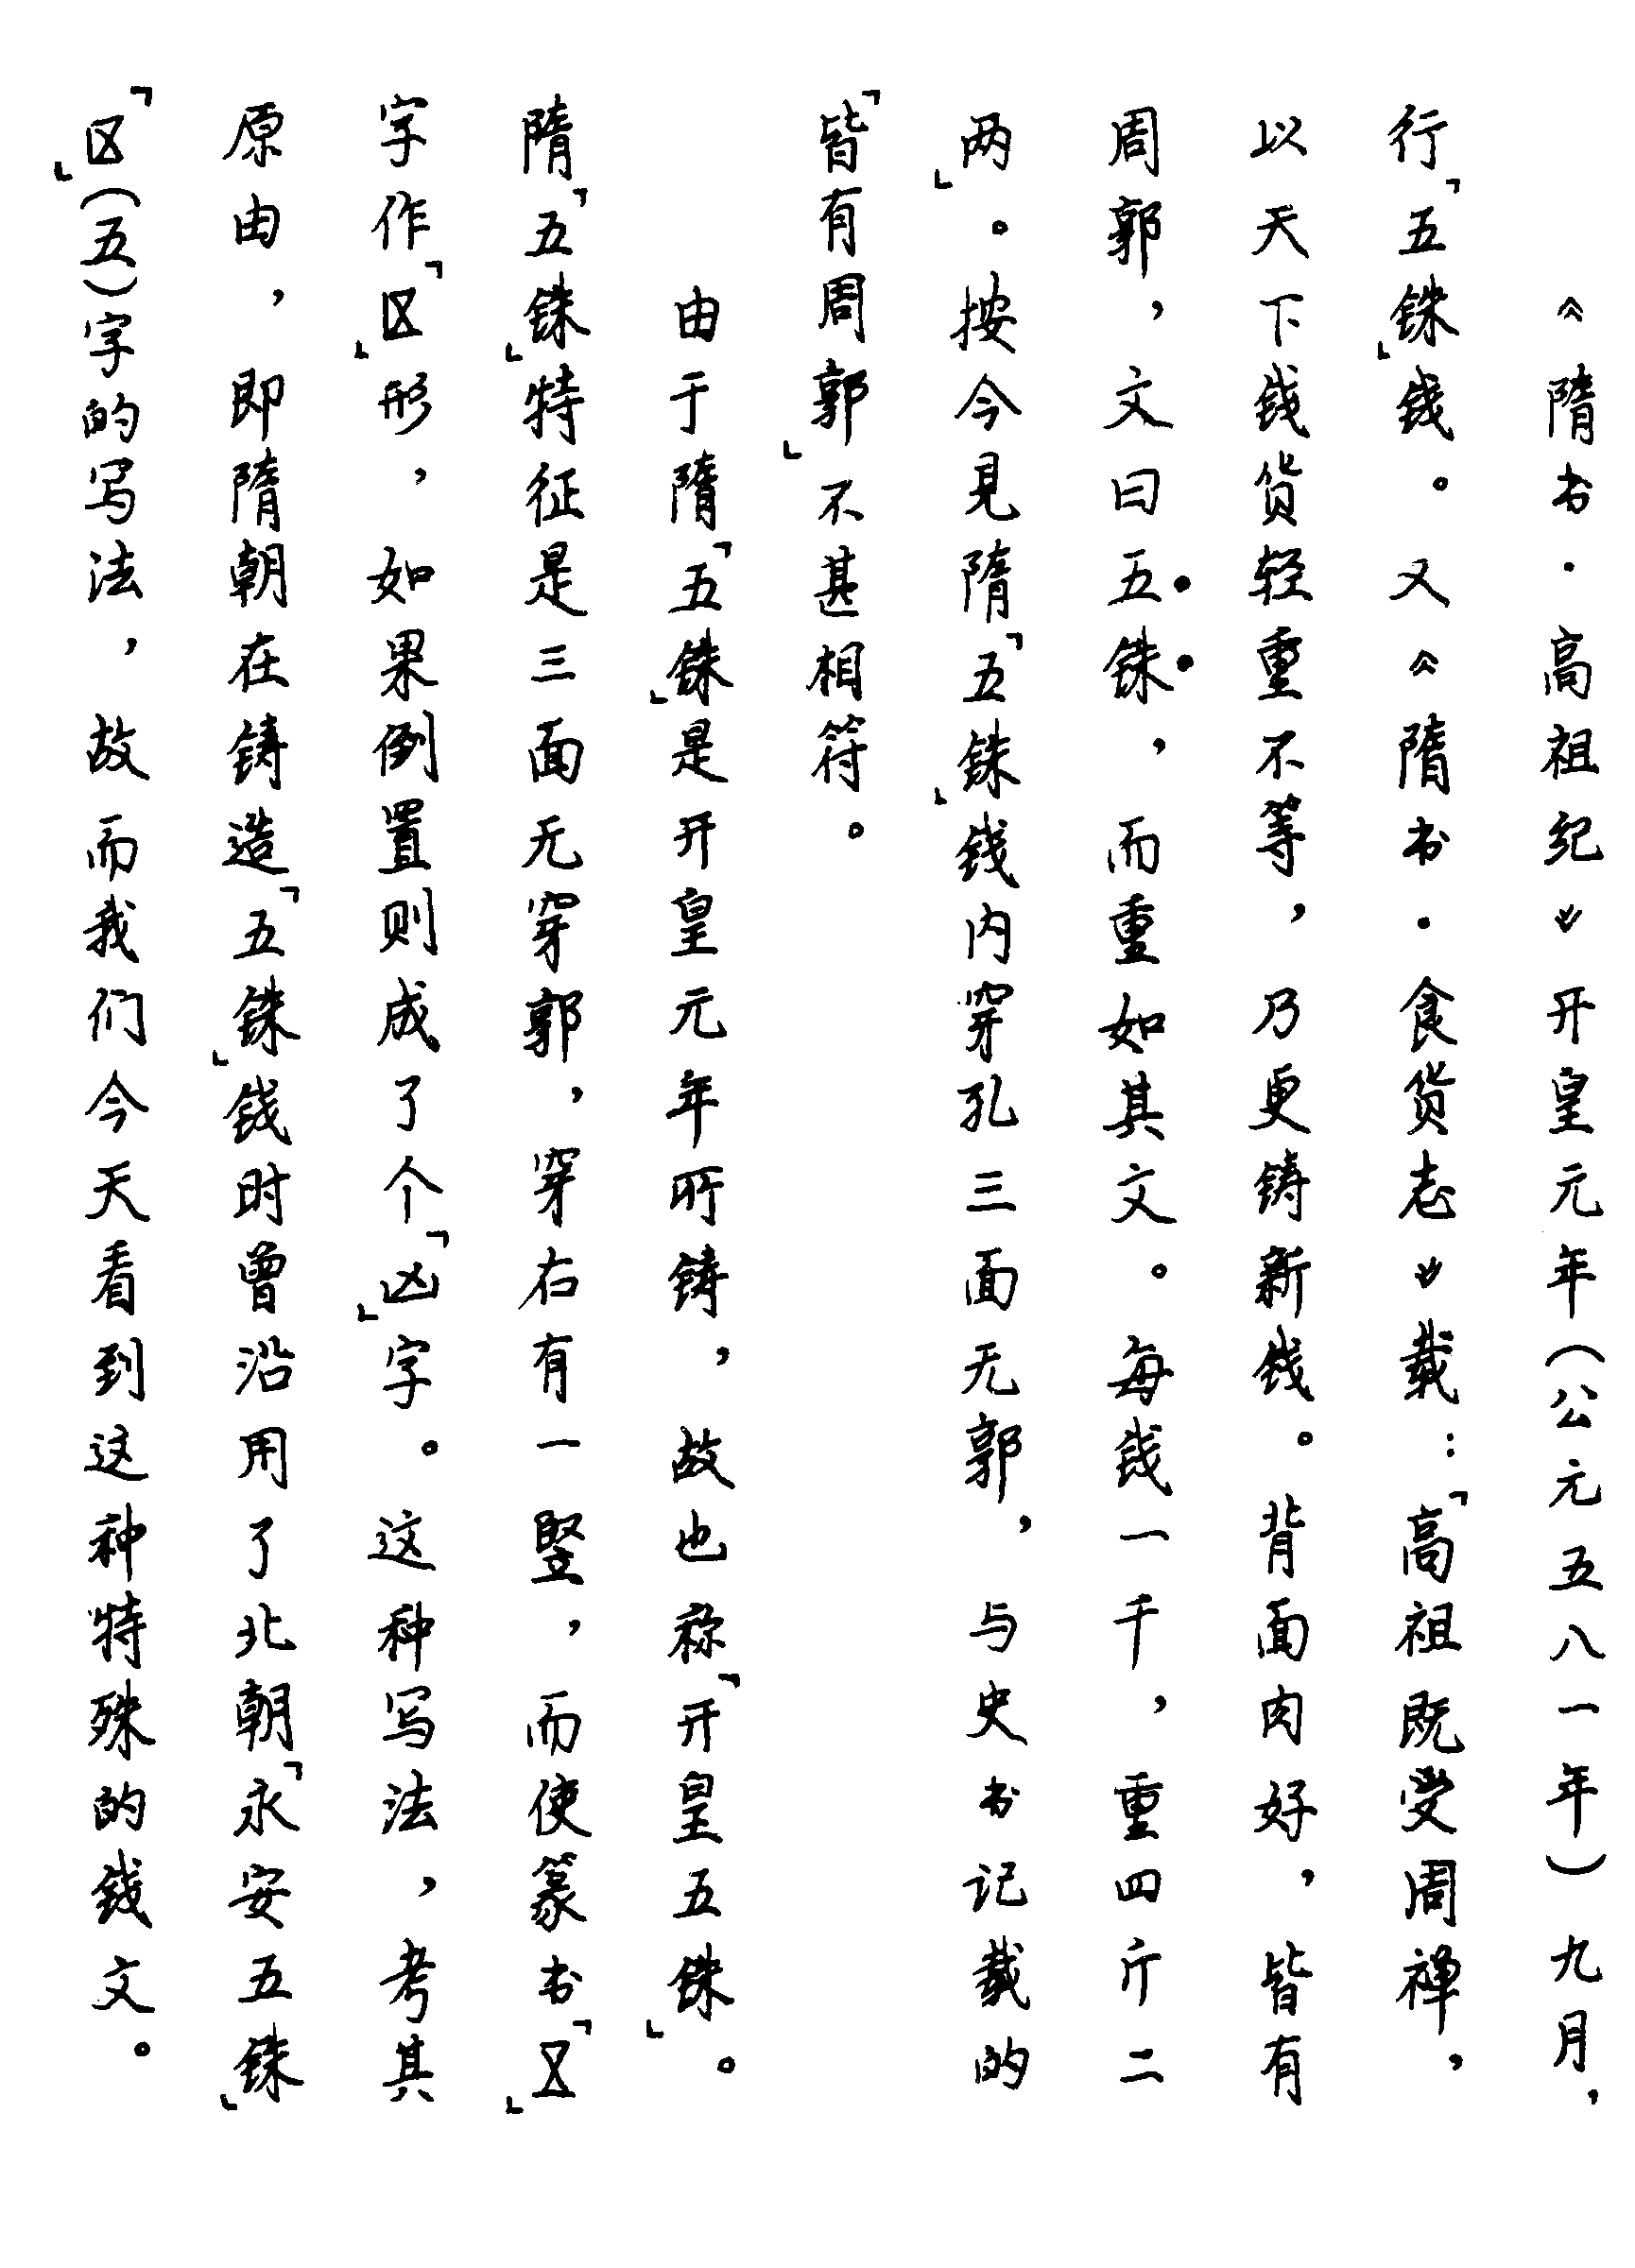 《隋书·高祖纪》开皇元年（公元五八一年）九月，
行「五铢」钱。又《隋书·食货志》载：「高祖既受周禅，
以天下钱货轻重不等，乃更铸新钱。背面肉好，皆有
周郭，文曰五铢，而重如其文。每钱一千，重四斤二
两」。按今见隋「五铢」钱内穿孔三面无郭，与史书记载的
「皆有周郭」不甚相符。
由于隋「五铢」是开皇元年所铸，故也称「开皇五铢」。
隋「五铢」特征是三面无穿郭，穿右有一竖，而使篆书「X」
字作「区」形，如果倒置则成了个「凶」字。这种写法，考其
原由，即隋朝在铸造「五铢」钱时曾沿用了北朝「永安五铢」
「区」（五）字的写法，故而我们今天看到这种特殊的钱文。